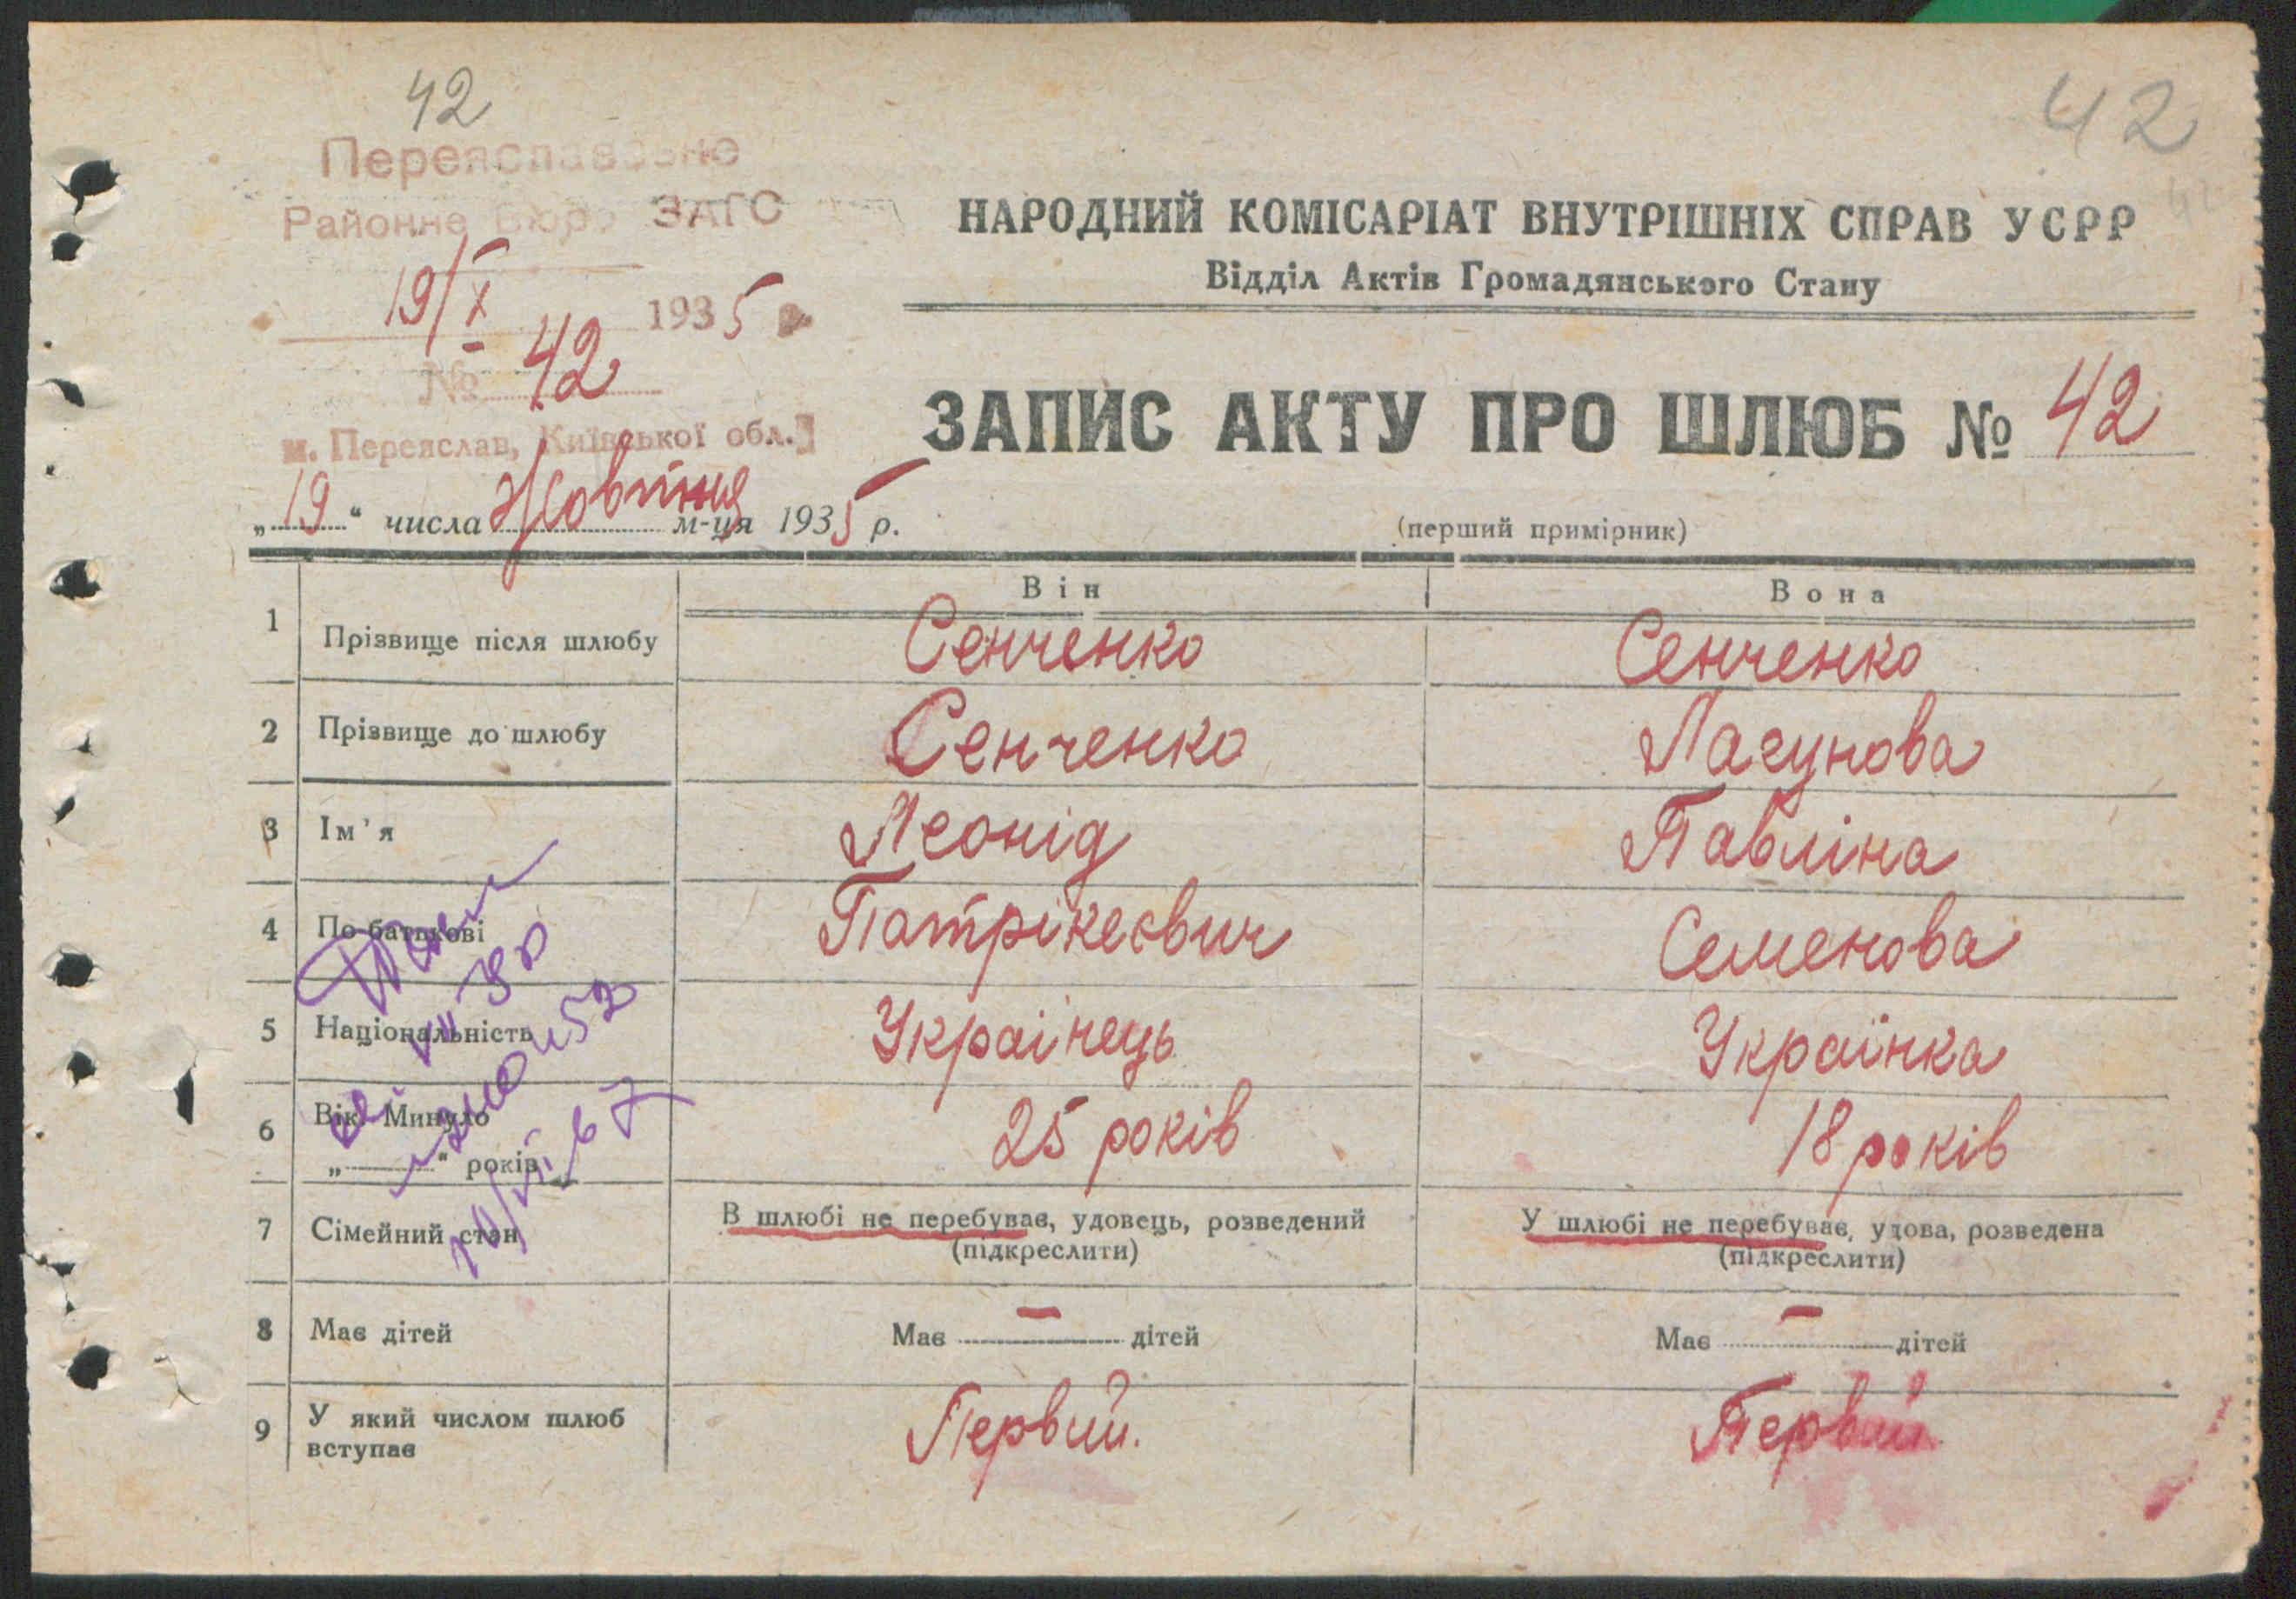 42
42
Переяславське
Районне Бюро ЗАГС
19/X 1935 р.
№ 42
м. Переяслав, Київської обл.
„19“ числа Жовтня м-ця 1935 р.
НАРОДНИЙ КОМІСАРІАТ ВНУТРІШНІХ СПРАВ УСРР
Відділ Актів Громадянського Стану
ЗАПИС АКТУ ПРО ШЛЮБ № 42
(перший примірник)
Він Вона
1 Прізвище після шлюбу Сенченко Сенченко
2 Прізвище до шлюбу Сенченко Лагунова
3 Ім'я Леонід Павліна
4 По батькові Патрікеєвич Семенова
5 Національність Украінець Українка
6 Вік. Минуло 25 років 18 років
„ “ років
7 Сімейний стан В шлюбі не перебуває, удовець, розведений У шлюбі не перебуває, удова, розведена
(підкреслити) (підкреслити)
8 Має дітей Має — дітей Має — дітей
9 У який числом шлюб Первий. Первий
вступає